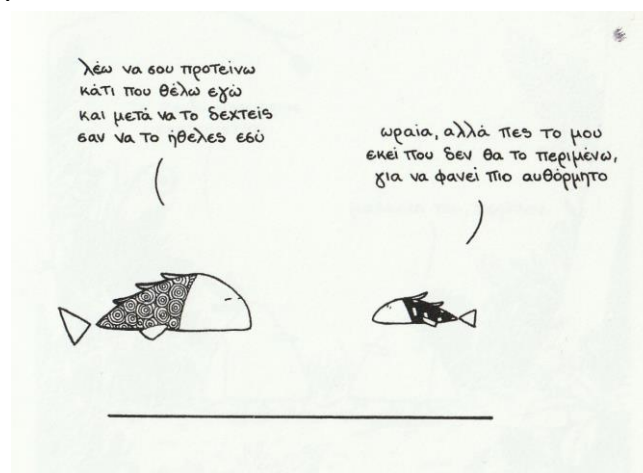 λέω να σου προτείνω
κάτι που θέλω εγώ
και μετά να το δεχτείς
σαν να το ήθελες εσύ
ωραία, αλλά πες το μου
εκεί που δεν θα το περιμένω,
για να φανεί πιο αυθόρμητο